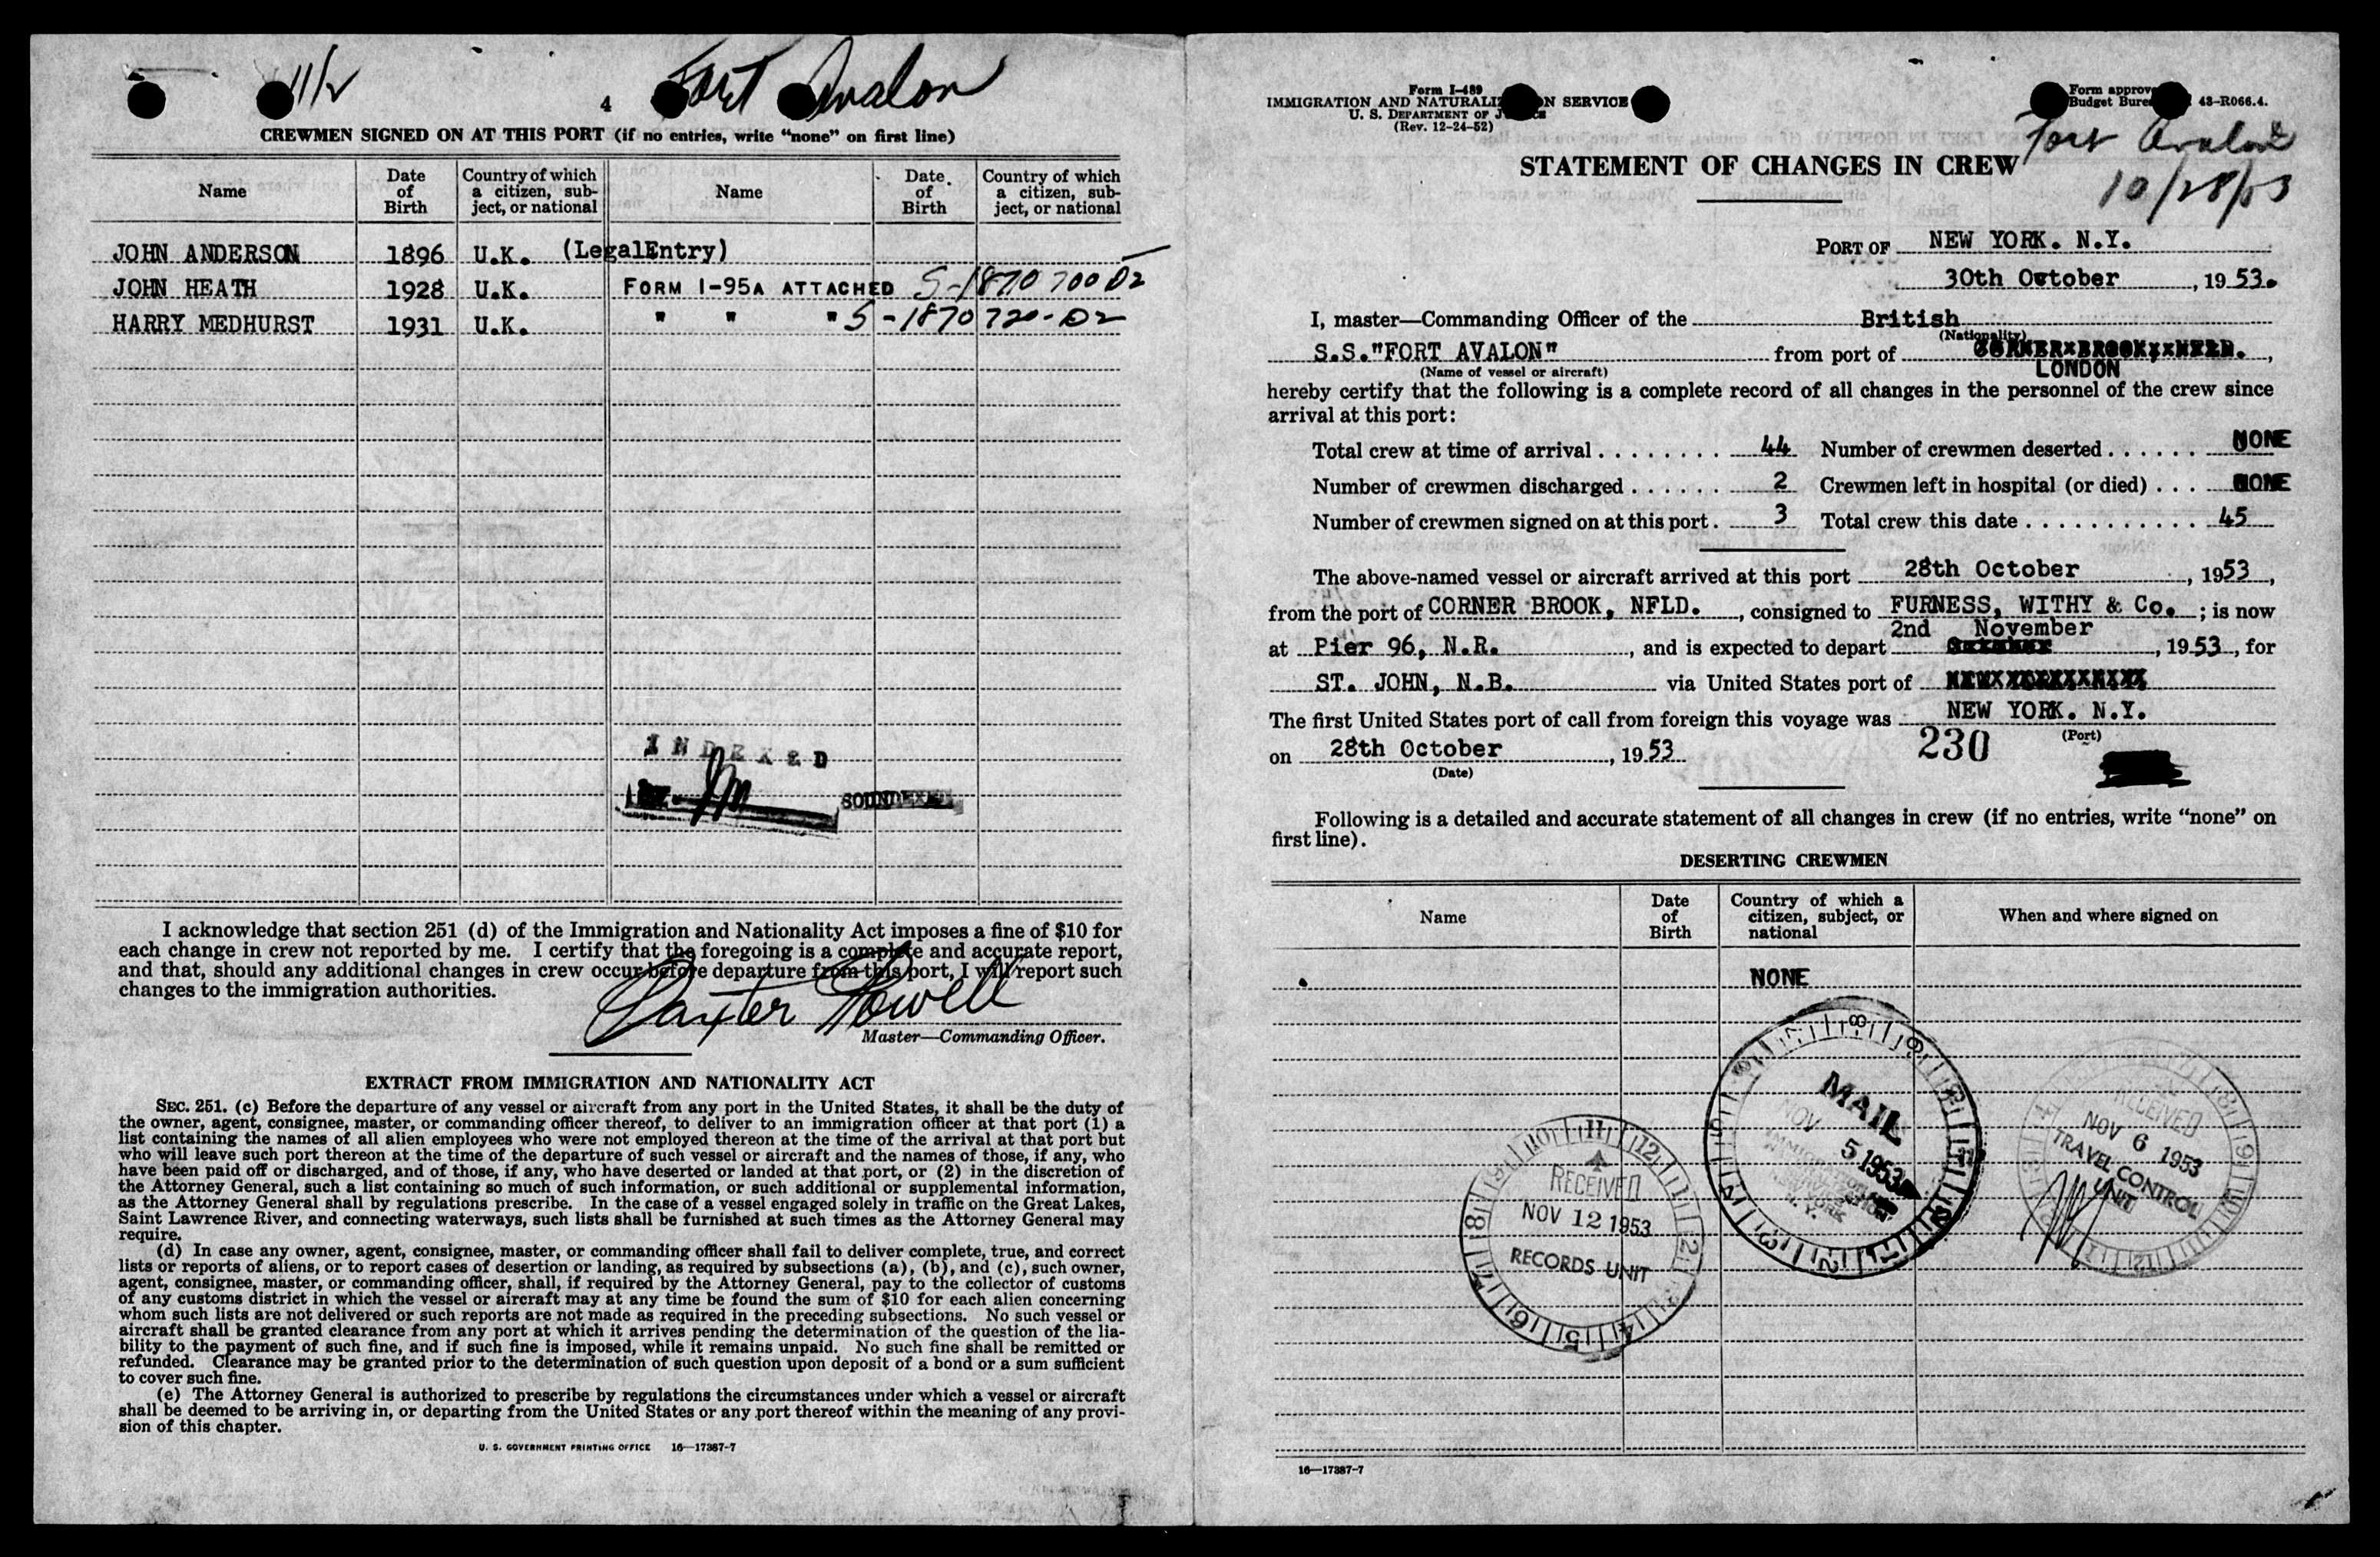 11/2
Fort Avalon
4
CREWMEN SIGNED ON AT THIS PORT (if no entries, write "none" on first line)
Name | Date of Birth | Country of which a citizen, subject, or national | Name | Date of Birth | Country of which a citizen, subject, or national
JOHN ANDERSON 1896 U.K. (LegalEntry)
JOHN HEATH 1928 U.K. FORM I-95A ATTACHED S-1870700 D2
HARRY MEDHURST 1931 U.K. " " " S-1870720-D2
INDEXED
SOUNDEXED
I acknowledge that section 251 (d) of the Immigration and Nationality Act imposes a fine of $10 for
each change in crew not reported by me. I certify that the foregoing is a complete and accurate report,
and that, should any additional changes in crew occur before departure from this port, I will report such
changes to the immigration authorities.
Baxter Powell
Master—Commanding Officer.
EXTRACT FROM IMMIGRATION AND NATIONALITY ACT
SEC. 251. (c) Before the departure of any vessel or aircraft from any port in the United States, it shall be the duty of
the owner, agent, consignee, master, or commanding officer thereof, to deliver to an immigration officer at that port (1) a
list containing the names of all alien employees who were not employed thereon at the time of the arrival at that port but
who will leave such port thereon at the time of the departure of such vessel or aircraft and the names of those, if any, who
have been paid off or discharged, and of those, if any, who have deserted or landed at that port, or (2) in the discretion of
the Attorney General, such a list containing so much of such information, or such additional or supplemental information,
as the Attorney General shall by regulations prescribe. In the case of a vessel engaged solely in traffic on the Great Lakes,
Saint Lawrence River, and connecting waterways, such lists shall be furnished at such times as the Attorney General may
require.
(d) In case any owner, agent, consignee, master, or commanding officer shall fail to deliver complete, true, and correct
lists or reports of aliens, or to report cases of desertion or landing, as required by subsections (a), (b), and (c), such owner,
agent, consignee, master, or commanding officer, shall, if required by the Attorney General, pay to the collector of customs
of any customs district in which the vessel or aircraft may at any time be found the sum of $10 for each alien concerning
whom such lists are not delivered or such reports are not made as required in the preceding subsections. No such vessel or
aircraft shall be granted clearance from any port at which it arrives pending the determination of the question of the lia-
bility to the payment of such fine, and if such fine is imposed, while it remains unpaid. No such fine shall be remitted or
refunded. Clearance may be granted prior to the determination of such question upon deposit of a bond or a sum sufficient
to cover such fine.
(e) The Attorney General is authorized to prescribe by regulations the circumstances under which a vessel or aircraft
shall be deemed to be arriving in, or departing from the United States or any port thereof within the meaning of any provi-
sion of this chapter.
U. S. GOVERNMENT PRINTING OFFICE 16—17387-7
Form I-489
IMMIGRATION AND NATURALIZ N SERVICE
U. S. DEPARTMENT OF
(Rev. 12-24-52)
Form approve
Budget Bure 43-R066.4.
Fort Avalon
10/28/53
STATEMENT OF CHANGES IN CREW
PORT OF NEW YORK. N.Y.
30th October, 1953.
I, master—Commanding Officer of the British
(Nationality)
S.S."FORT AVALON" from port of CORNER BROOK, NFLD.,
(Name of vessel or aircraft) LONDON
hereby certify that the following is a complete record of all changes in the personnel of the crew since
arrival at this port:
Total crew at time of arrival . . . . . . . . 44 Number of crewmen deserted . . . . . . NONE
Number of crewmen discharged . . . . . . 2 Crewmen left in hospital (or died) . . . NONE
Number of crewmen signed on at this port . 3 Total crew this date . . . . . . . . . . . 45
The above-named vessel or aircraft arrived at this port 28th October, 1953,
from the port of CORNER BROOK, NFLD., consigned to FURNESS, WITHY & Co.; is now
2nd November
at Pier 96, N.R., and is expected to depart October, 1953, for
ST. JOHN, N.B. via United States port of
The first United States port of call from foreign this voyage was NEW YORK. N.Y.
(Port)
on 28th October, 1953
(Date)
230
Following is a detailed and accurate statement of all changes in crew (if no entries, write "none" on
first line).
DESERTING CREWMEN
Name | Date of Birth | Country of which a citizen, subject, or national | When and where signed on
NONE
MAIL
NOV 5 1953
IMMIGRATION
NEW YORK
N. Y.
RECEIVED
NOV 6 1953
TRAVEL CONTROL
UNIT
RECEIVED
NOV 12 1953
RECORDS UNIT
16—17387-7